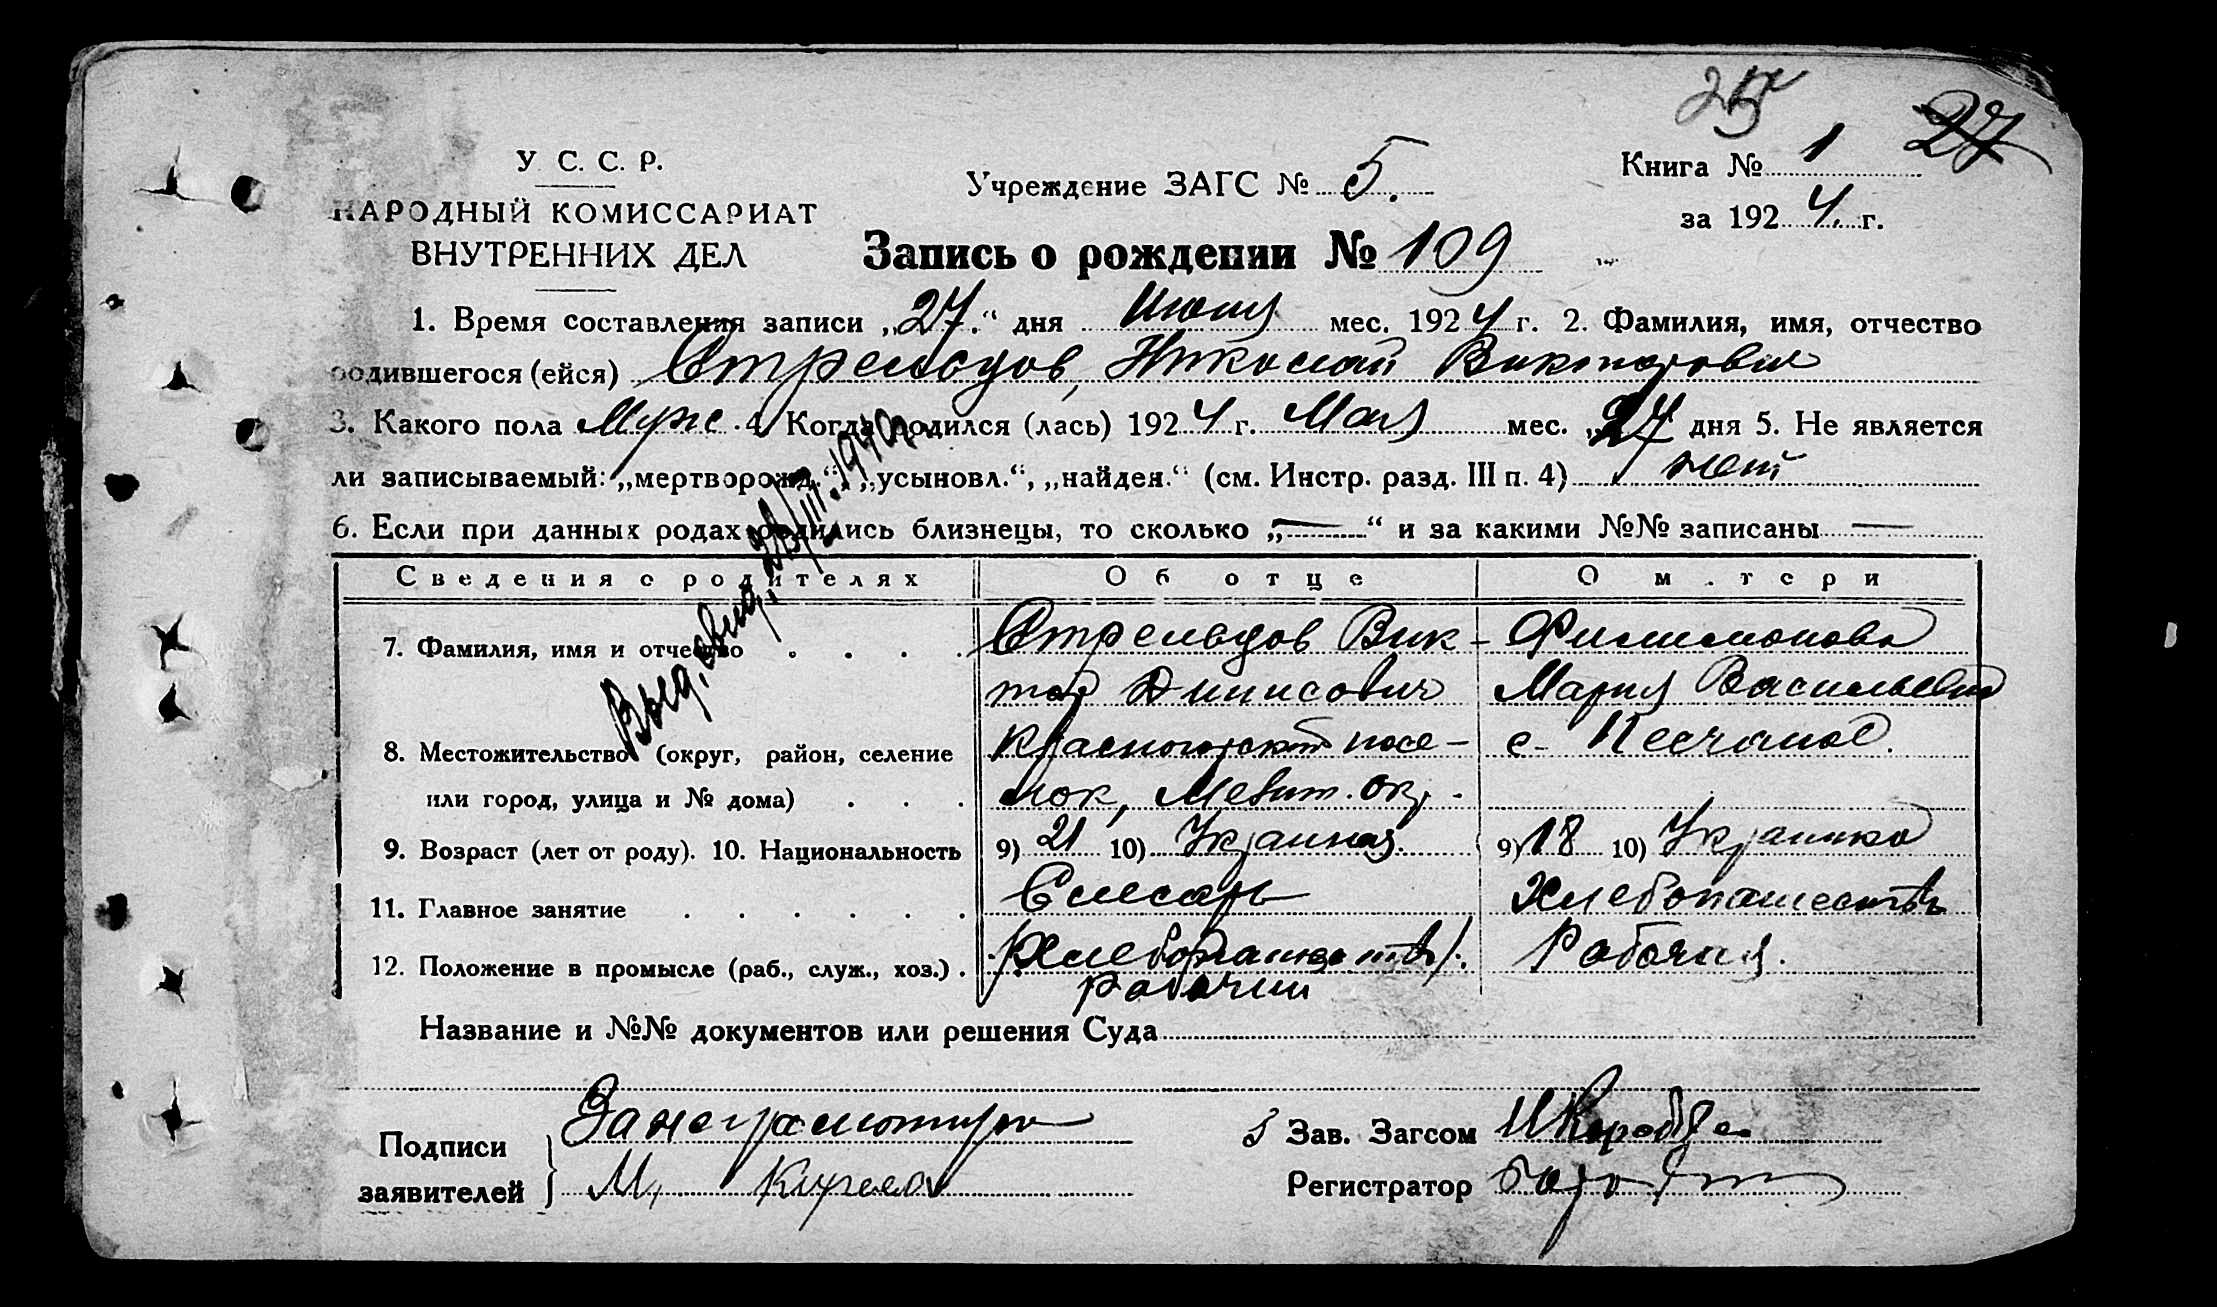 25
27
У. С. С. Р.
НАРОДНЫЙ КОМИССАРИАТ
ВНУТРЕННИХ ДЕЛ
Учреждение ЗАГС № 5.
Книга № 1
за 1924. г.
Запись о рождении № 109
1. Время составления записи „27." дня Июня мес. 1924 г. 2. Фамилия, имя, отчество
родившегося (ейся) Стрельцов, Николай Викторович
3. Какого пола Муж. 4. Когда родился (лась) 1924 г. Мая мес. „27" дня 5. Не является
ли записываемый: „мертворожд.", „усыновл.", „найден." (см. Инстр. разд. III п. 4) нет
6. Если при данных родах родились близнецы, то сколько „—" и за какими №№ записаны —
Выд. свид.
Сведения о родителях Об отце О матери
7. Фамилия, имя и отчество . . . . Стрельцов Вик- Филимонова
тор Динисович Мария Васильевна
8. Местожительство (округ, район, селение Красногорский посе- с. Песчаное.
или город, улица и № дома) . . . лок, Мелит. окр.
9. Возраст (лет от роду). 10. Национальность 9) 21 10) Украинец. 9) 18 10) Украинка
11. Главное занятие . . . . . . Слесарь Хлебопашество
12. Положение в промысле (раб., служ., хоз.) . Рабочая.
рабочий
Название и №№ документов или решения Суда
Подписи
заявителей
За неграмотную
М.
Зав. Загсом
Регистратор